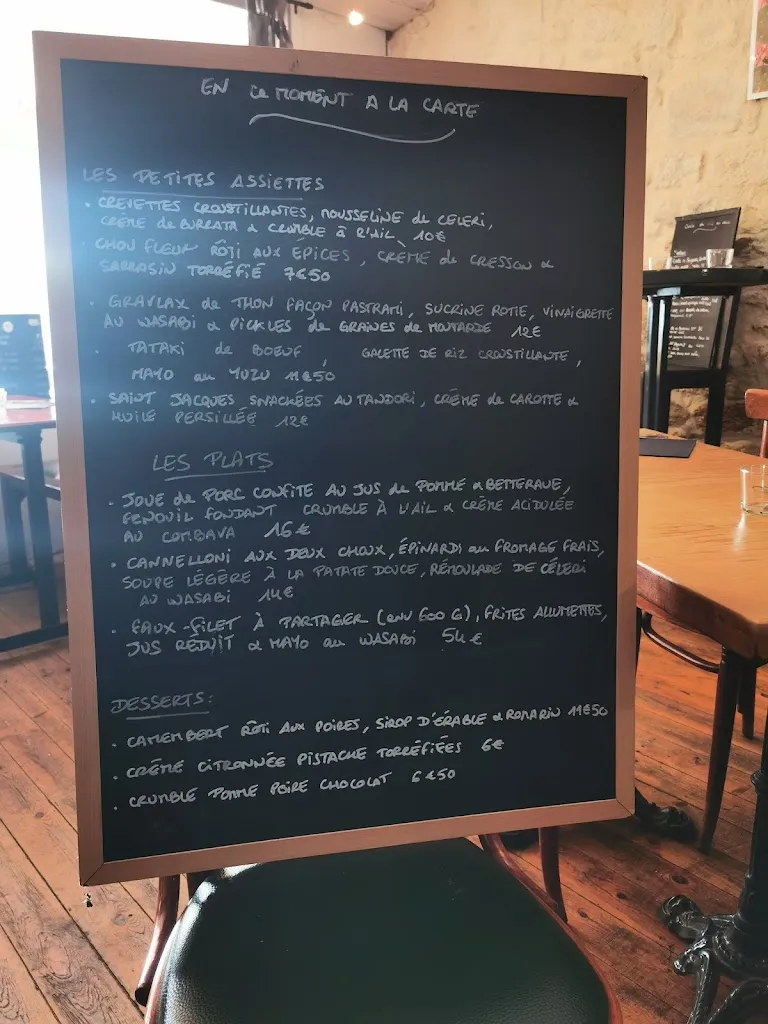 EN CE MOMENT A LA CARTE
LES PETITES ASSIETTES
• CREVETTES CROUSTILLANTES, MOUSSELINE de CELERI,
CRÈME de BURRATA & CRUMBLE À L'AIL 10€
• CHOU FLEUR RÔTI AUX ÉPICES, CRÈME de CRESSON &
SARRASIN TORRÉFIÉ 7€50
• GRAVLAX de THON FAÇON PASTRAMI, SUCRINE ROTIE, VINAIGRETTE
AU WASABI & PICKLES de GRAINES de MOUTARDE 12€
• TATAKI de BOEUF, GALETTE DE RIZ CROUSTILLANTE,
MAYO au YUZU 11€50
• SAINT JACQUES SNACKÉES AU TANDORI, CRÈME de CAROTTE &
HUILE PERSILLÉE 12€
LES PLATS
• JOUE de PORC CONFITE AU JUS de POMME & BETTERAVE,
FENOUIL FONDANT CRUMBLE À L'AIL & CRÈME ACIDULÉE
AU COMBAVA 16€
• CANNELLONI AUX DEUX CHOUX, ÉPINARDS au FROMAGE FRAIS,
SOUPE LÉGÈRE À LA PATATE DOUCE, RÉMOULADE DE CÉLERI
AU WASABI 14€
• FAUX-FILET À PARTAGER (env 600 G), FRITES ALLUMETTES,
JUS RÉDUIT & MAYO au WASABI 54€
DESSERTS:
• CAMEMBERT RÔTI AUX POIRES, SIROP D'ÉRABLE & ROMARIN 11€50
• CRÈME CITRONNÉE PISTACHE TORRÉFIÉES 6€
• CRUMBLE POMME POIRE CHOCOLAT 6€50